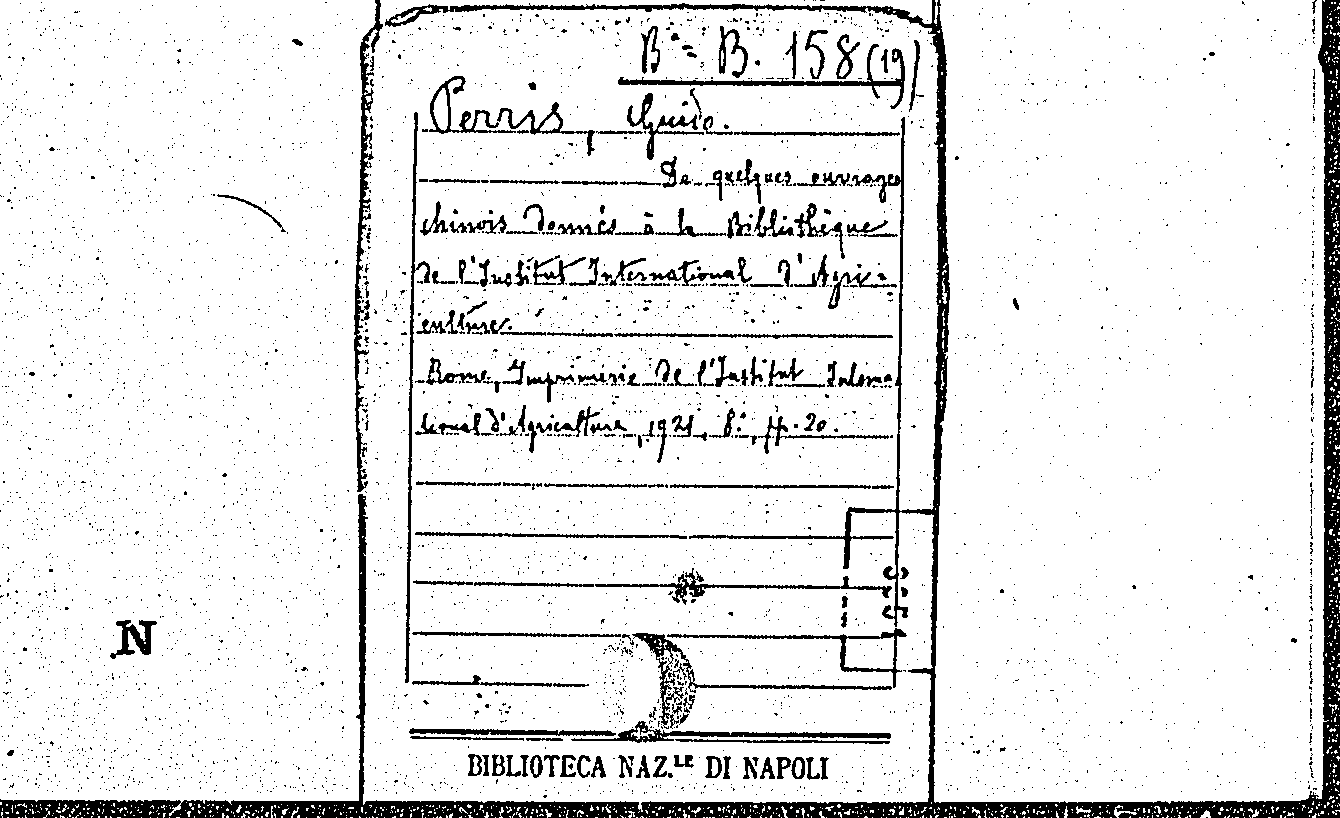 B = B. 158 (19)
Perris, Guido.
De quelques ouvrages
chinois donnés à la Bibliothèque
de l'Institut International d'Agri-
culture.
Rome, Imprimerie de l'Institut Interna
tional d'Agriculture, 1921, 8°, pp. 20.
N
BIBLIOTECA NAZ.LE DI NAPOLI